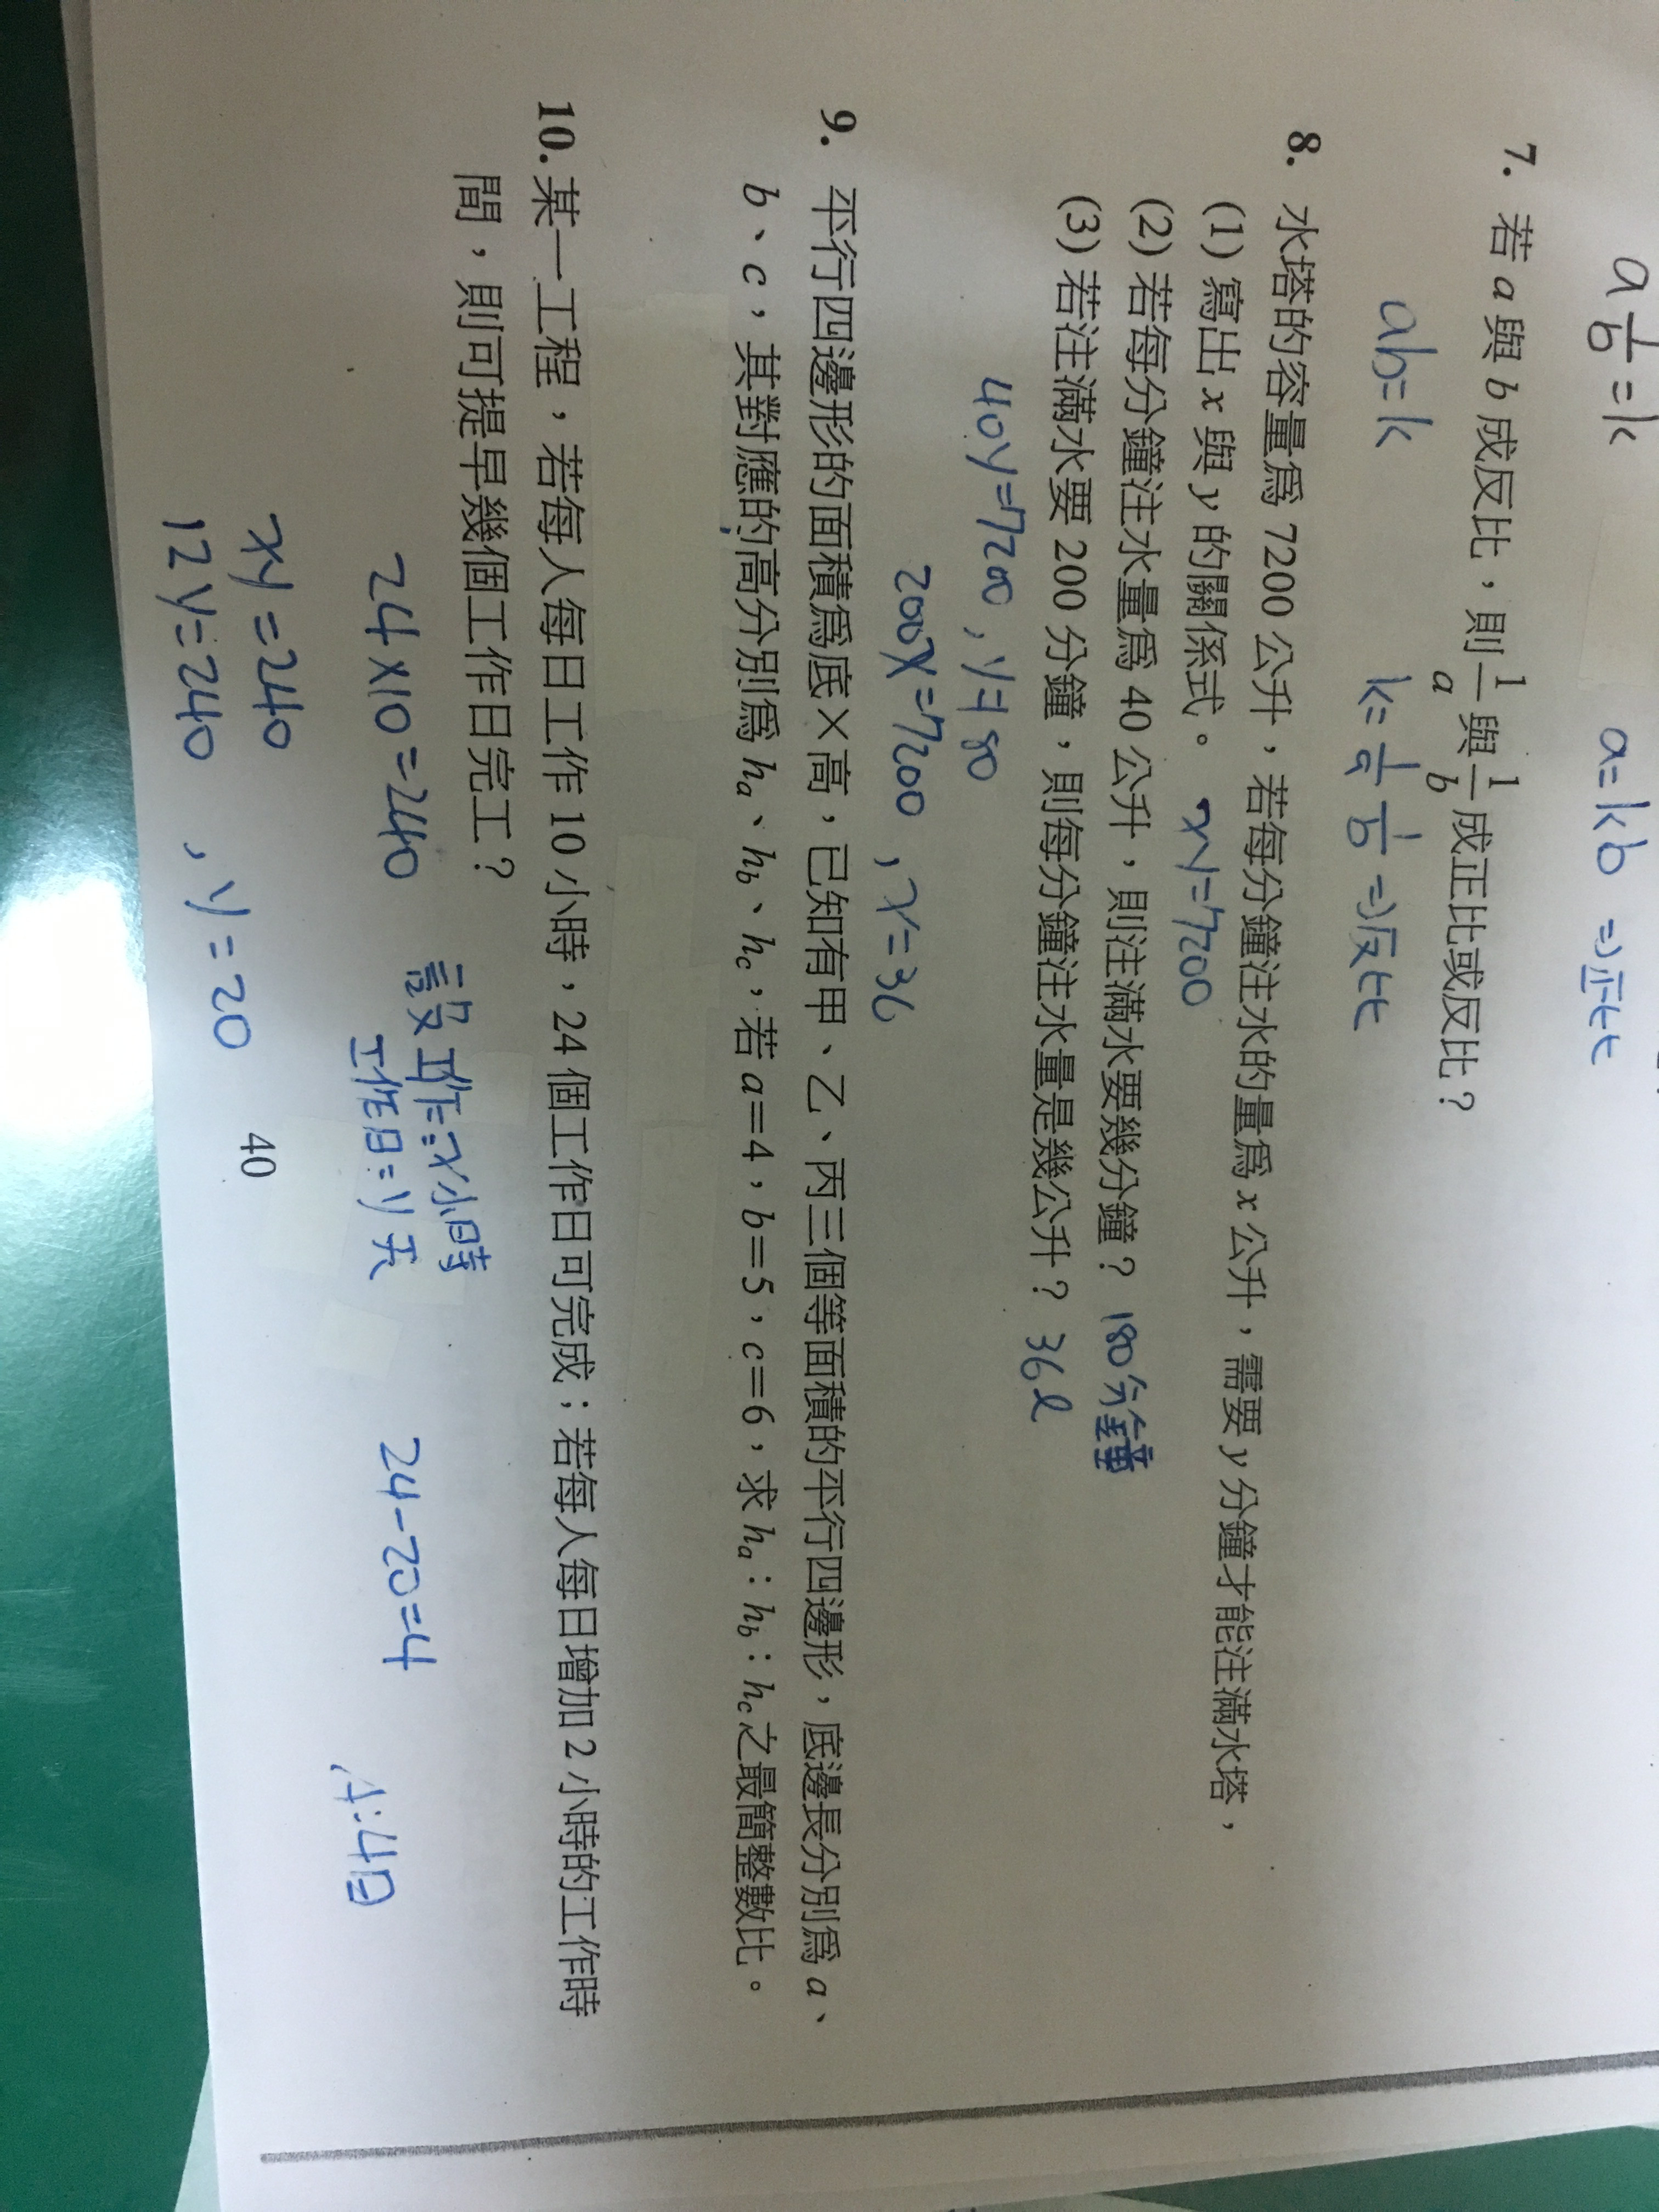 a 1/b = k　a = kb ⇒ 正比
7. 若 a 與 b 成反比，則 1/a 與 1/b 成正比或反比？
ab = k　k = 1/a 1/b ⇒ 反比
8. 水塔的容量為 7200 公升，若每分鐘注水的量為 x 公升，需要 y 分鐘才能注滿水塔，
(1) 寫出 x 與 y 的關係式。 xy=7200
(2) 若每分鐘注水量為 40 公升，則注滿水要幾分鐘？ 180分鐘
(3) 若注滿水要 200 分鐘，則每分鐘注水量是幾公升？ 36ℓ
40y=7200，y=180
200x=7200，x=36
9. 平行四邊形的面積為底×高，已知有甲、乙、丙三個等面積的平行四邊形，底邊長分別為 a、
b、c，其對應的高分別為 ha、hb、hc，若 a=4，b=5，c=6，求 ha：hb：hc之最簡整數比。
10. 某一工程，若每人每日工作 10 小時，24 個工作日可完成；若每人每日增加 2 小時的工作時
間，則可提早幾個工作日完工？
設工作=x小時
24×10=240　工作日=y天　24-20=4
A:4日
xy=240
12y=240，y=20
40